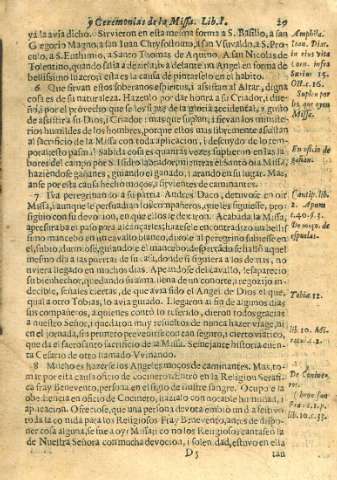 y Ceremonias de la Missa. Lib. I. 29
ya la avia dicho. Sirvieron en esta mesma forma a S. Basilio, a san
Gregorio Magno, a san Juan Chrysostomo, a san Vsualdo, a S. Pro-
culo, a S. Euthimo, a Santo Thomas de Aquino. A san Nicolas de
Tolentino, quando salia a dezirla, iva delante un Angel en forma de
bellissimo luzero; i esta es la causa de pintarselo en el habito.
6 Que sirvan estos soberanos espiritus, i assistan al Altar, digna
cosa es de su naturaleza. Hazenlo por dar honor a su Criador, i due-
ño, i por el provecho que se les sigue de la gloria accidental, i gusto
de assistir a su Dios, i Criador: mas que suplan, i sirvan los ministe-
riles humildes de los hombres, porque ellos mas libremente assistan
al sacrificio de la Missa con toda aplicacion, i descuydo de lo tem-
poral, esso pasma! Sabida cosa es quantas vezes supliero en las la-
bores del campo por S. Isidro labrador, mientras el Santo oia Missa,
haziendose gañanes, guiando el ganado, i arando en su lugar. Mas,
aun se por esta causa hecho moços, i sirvientes de caminantes.
7 Iva peregrinando a su patria Andres Daco, detuvose en oir
Missa, i aunque le persuadian los compañeros, que les siguiesse, pro-
siguio con su devocion, en que ellos le dexaron. Acabada la Missa,
apresurava el paso para alcançarles; hazesele encontradizo un bellis-
simo mancebo en un cavallo blanco, dixole al peregrino subiesse en
el, subio, durmiose, guiandole el mancebo: despertado se hallo aquel
mesmo dia a las puertas de su casa, donde si siguiera a los demas, no
uviera llegado en muchos dias. Apeandose del cavallo, le desaparecio
su bienhechor, quedando su alma llena de un conorte, i regozijo in-
decible, señales ciertas, de que avia sido el Angel de Dios el que,
qual a otro Tobias, lo avia guiado. Llegaron al fin de algunos dias
sus compañeros, a quienes contò lo referido, dieron todos gracias
a nuestro Señor, i quedaron muy resueltos de nunca hazer viage, ni
en el jornada, sin primero prevenirse con tan seguro, i cierto viatico,
que da el sacrosanto sacrificio de la Missa. Semejante historia cuen-
ta Cesario de otro llamado Vvinando.
8 Mucho es hazerse los Angeles moços de caminantes. Mas, to-
mar por esta causa oficio de cocineros. Entrò en la Religion Serafica
fray Benevento, persona en el siglo de ilustre sangre. Ocupole la
obediencia en oficio de Cocinero, hazialo con notable humildad, i
aplicacion. Ofreciose, que una persona devota embiò un dia festivo
toda la comida para los Religiosos. Fray Benevento, antes de dispo-
ner cosa alguna, se fue a oyr Missa: i como los Religiosos cantassen la
de Nuestra Señora con mucha devocion, i solenidad, estuvo en ella
D 5 tan
Amphilo.
Joan. Dia.
in eius vita
cum. infra
Surius 15.
Oct. c. 16.
Suple por
los que oyen
Missa.
En oficio de
gañan.
De moço de
espuelas.
Tobiæ 12.
De Cocinero.